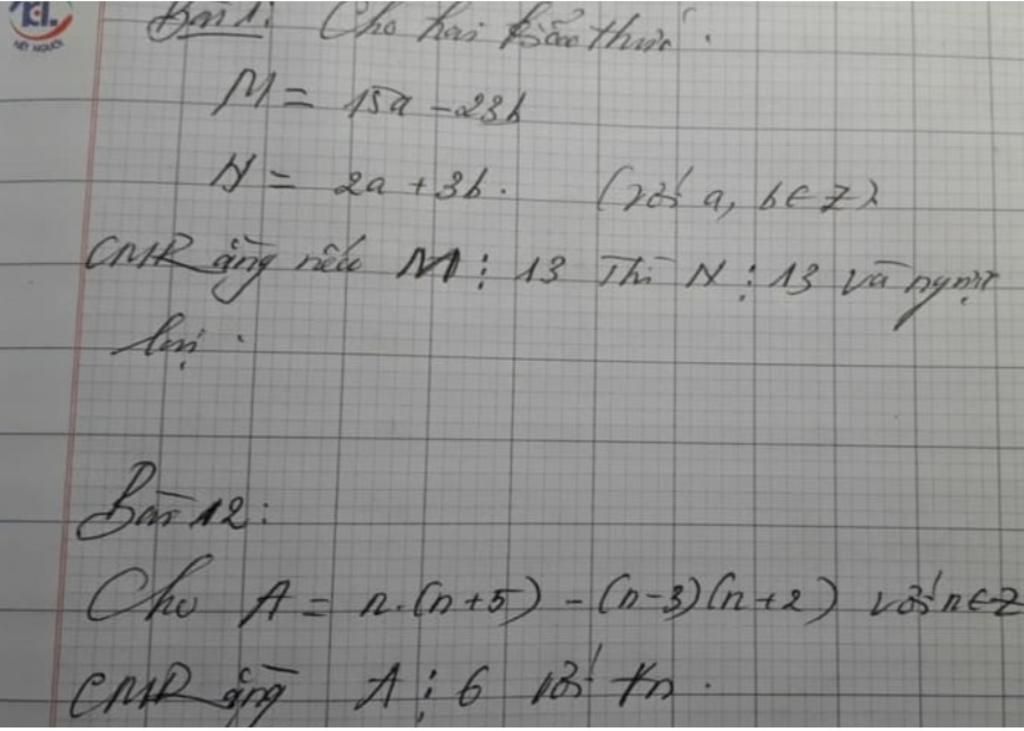 TCL
NÉT NGƯỜI
Bài 1: Cho hai biểu thức:
M = 15a - 23b
N = 2a + 3b. (với a, b ∈ Z)
CMR ằng nếu M ⋮ 13 Thì N ⋮ 13 và ngược
lại.
Bài 12:
Cho A = n.(n+5) - (n-3)(n+2) với n ∈ Z
CMR ằng A ⋮ 6 với ∀n.